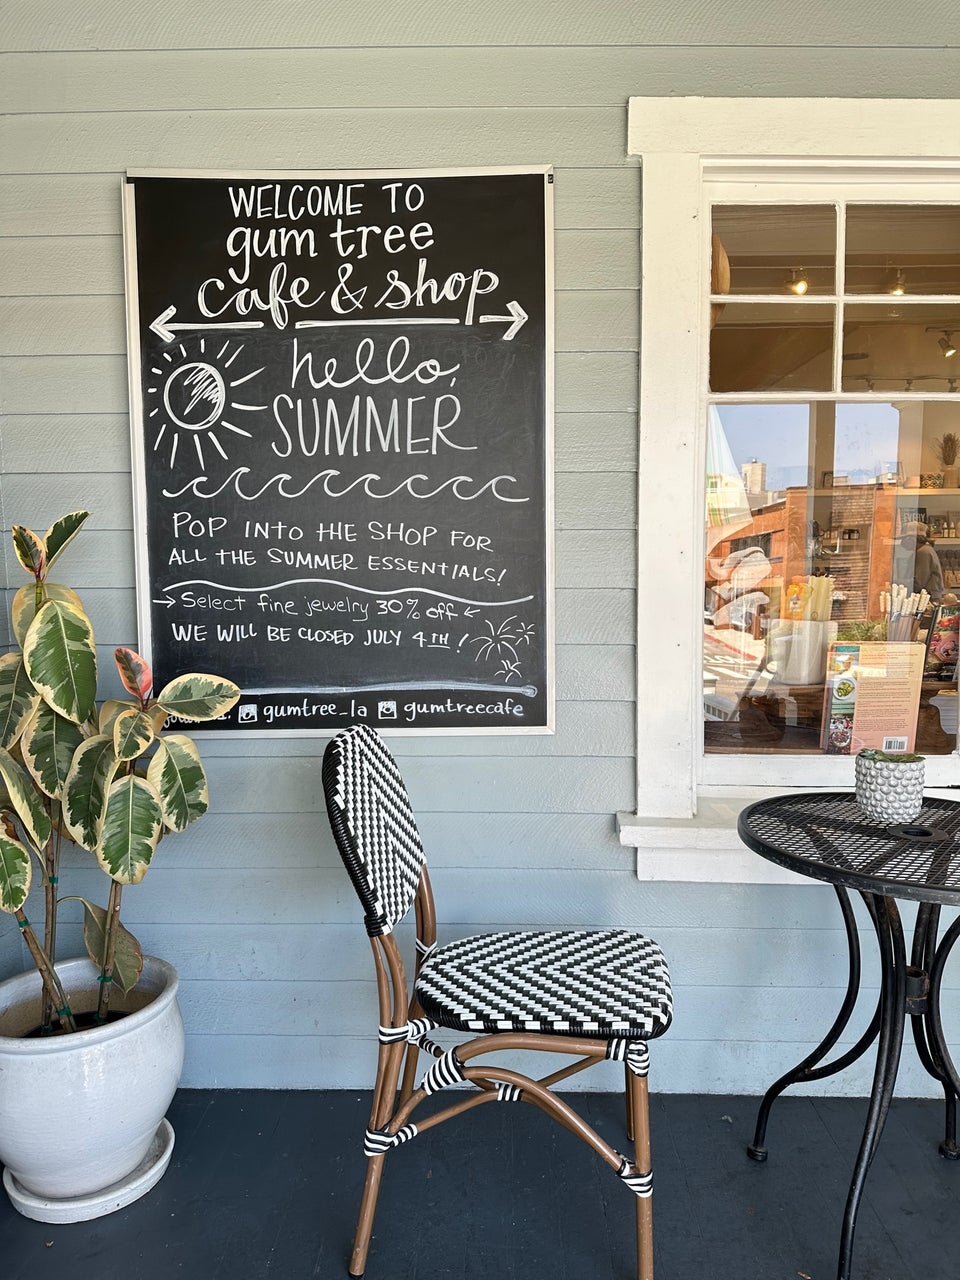 WELCOME TO
gum tree
cafe & shop
hello,
SUMMER
POP INTO THE SHOP FOR
ALL THE SUMMER ESSENTIALS!
Select fine jewelry 30% off
WE WILL BE CLOSED JULY 4TH!
gumtree_la gumtreecafe